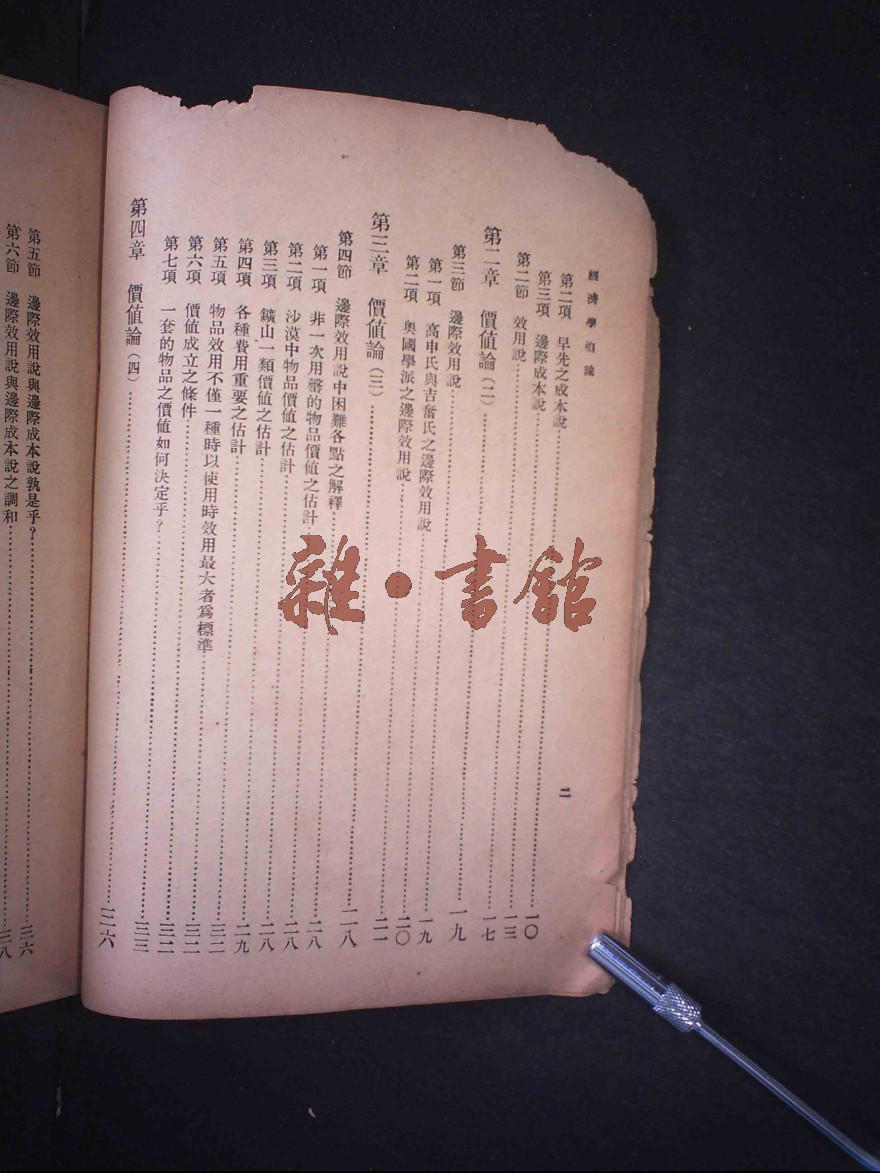 經濟學槪論
二
第二項 早先之成本說 一〇
第三項 邊際成本說 一三
第二節 效用說 一七
第二章 價值論(二) 一九
第三節 邊際效用說 一九
第一項 高申氏與吉奮氏之邊際效用說 二〇
第二項 奧國學派之邊際效用說
第三章 價值論(三) 二八
第四節 邊際效用說中困難各點之解釋 二八
第一項 非一次用罄的物品價值之估計 二八
第二項 沙漠中物品價值之估計 二八
第三項 鑛山一類價值之估計 二九
第四項 各種費用重要之估計 三二
第五項 物品效用不僅一種時以使用時效用最大者爲標準 三二
第六項 價值成立之條件 三二
第七項 一套的物品之價值如何決定乎? 三三
第四章 價值論(四) 三六
第五節 邊際效用說與邊際成本說孰是乎? 三六
第六節 邊際效用說與邊際成本說之調和 三八
雜·書館